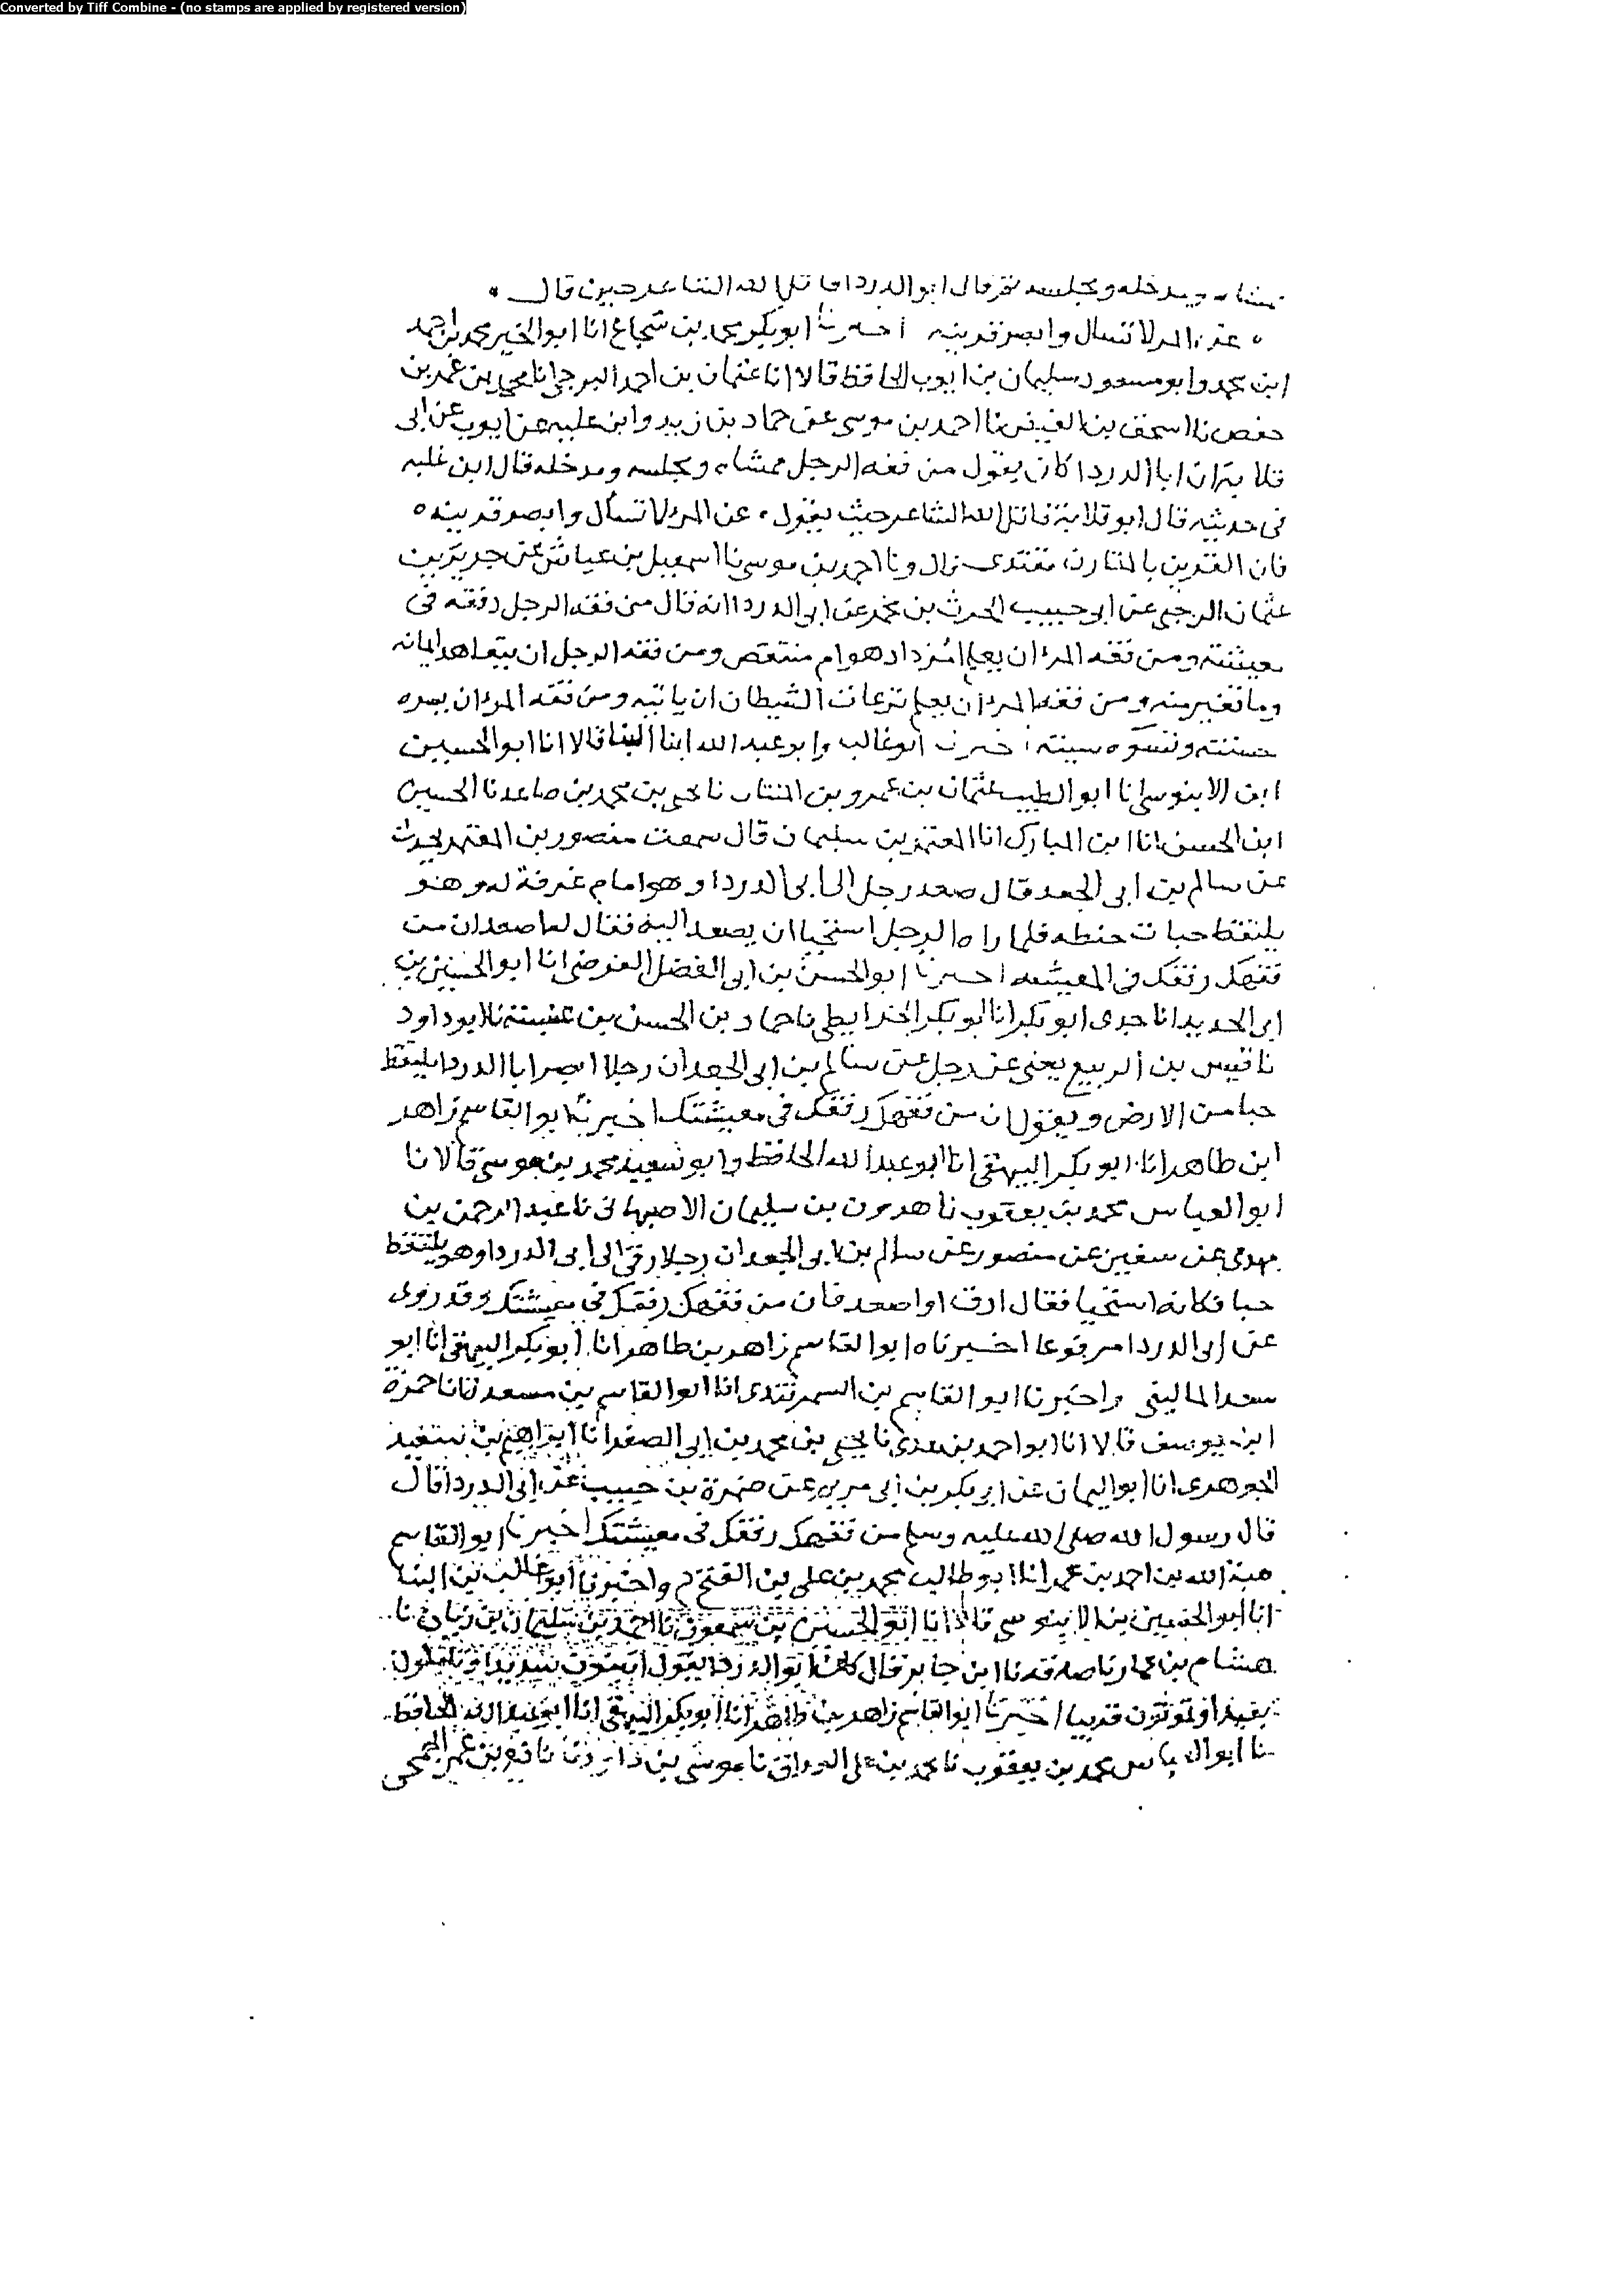 Converted by Tiff Combine - (no stamps are applied by registered version)
ومدخله ومجلسه ثم قال ابو الدردا قاتل الله الشاعر حين قال
عن المرلا تسال وابصر قرينه اخبرنا ابو بكر محمد بن شجاع انا ابو الخير محمد بن احمد
ابن محمد وابو مسعود سليمان بن ابيوب الحافظ قالا انا عثمان بن احمد البرجي انا محمد بن عمر بن
حفص نا اسحق بن الفيض نا احمد بن موسى عن حماد بن زيد وابن عليه عن ايوب عن ابى
قلابة ان ابا الدردا كان يقول من فقه الرجل ممشاه ومجلسه ومدخله قال ابن علبه
فى حديثه قال ابو قلابة قاتل الله الشاعر حيث يقول عن المرلا تسأل وابصر قرينه
فان القرين بالمقارن مقتدى قال ونا احمد بن موسى نا اسمعيل بن عياش عن حريز بن
عثمان الرحبى عن ابى حبيب الحرث بن مخمر عن ابى الدردا انه قال من فقه الرجل رفقه فى
معيشته ومن فقه المران يعلم امزداد هو ام منتقص ومن فقه الرجل ان يتعاهد ايمانه
وما تغير منه ومن فقه المران يعلم نزغات الشيطان ان ياتيه ومن فقه المران يسره
حسنته وتسوه سيئته اخبرنا ابو غالب وابو عبد الله ابنا البنا قالا انا ابو الحسين
ابن الابنوسى انا ابو الطيب عثمان بن عمرو بن المنتاب نا يحيى بن محمد بن صاعد نا الحسين
ابن الحسن انا ابن المبارك انا المعتمر بن سليمان قال سمعت منصور بن المعتمر يحدث
عن سالم بن ابى الجعد قال صعد رجل الى ابى الدردا وهو امام غرفة له وهو
يلتقط حبات حنطه فلما راه الرجل استحيا ان يصعد اليه فقال لها صعد ان من
فقهك رفقك فى المعيشه اخبرنا ابو الحسن بن ابى الفضل الفرضى انا ابو الحسين بن
ابى الحديد انا جدى ابو بكر انا ابو بكر الخرايطى نا حماد بن الحسن بن عنبسة نا ابو داود
نا قيس بن الربيع يعنى عن رجل عن سالم بن ابى الجعد ان رجلا ابصر ابا الدردا يلتقط
حبا من الارض ويقول ان من فقهك رفقك فى معيشتك اخبرنا ابو القاسم زاهر
ابن طاهر انا ابو بكر البيهقى انا ابو عبد الله الحافظ وابو سعيد محمد بن موسى قالا نا
ابو العباس محمد بن يعقوب نا هرون بن سليمان الاصبهانى نا عبد الرحمن بن
مهدى عن سفين عن منصور عن سالم بن ابى الجعد ان رجلا رقى الى ابى الدردا وهو يلتقط
حبا فكانه استحيا فقال ارق او اصعد فان من فقهك رفقك فى معيشتك وقد روى
عن ابى الدردا مرفوعا اخبرناه ابو القاسم زاهر بن طاهر انا ابو بكر البيهقى انا ابو
سعد المالينى واخبرنا ابو القاسم بن السمرقندى انا ابو القاسم بن مسعدة انا حمزة
ابن يوسف قالا انا ابو احمد بن عدى نا يحيى بن محمد بن ابى الصفرا نا ابراهيم بن سعيد
الجوهرى انا ابو اليمان عن ابى بكر بن ابى مريم عن ضمرة بن حبيب عن ابى الدردا قال
قال رسول الله صلى الله عليه وسلم من فقهك رفقك فى معيشتك اخبرنا ابو القاسم
هبة الله بن احمد بن عمر انا ابو طالب محمد بن على بن الفتح واخبرنا ابو غالب بن البنا
انا ابو الحسين بن الابنوسى قالا انا ابو الحسين بن سمعون نا احمد بن سليمان بن زبان نا
هشام بن عمار نا صدقة نا ابن جابر قال كان ابو الدردا يقول
اخبرنا ابو القاسم زاهر بن طاهر انا ابو بكر البيهقى انا ابو عبد الله الحافظ
نا ابو العباس محمد بن يعقوب نا محمد بن على الوراق نا موسى بن داود نا نافع بن عمر الجمحى